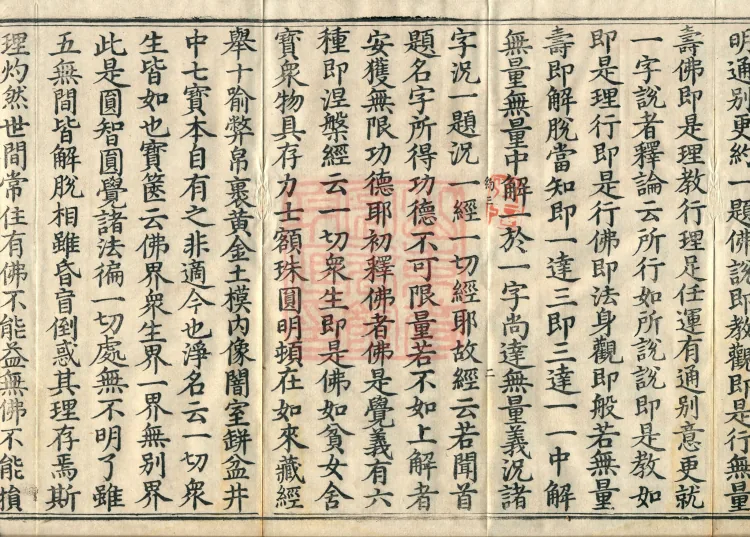 明通別更約一題佛說即教觀即是行無量
壽佛即是理教行理足任運有通別意更就
一字說者釋論云所行如所說說即是教如
即是理行即是行佛即法身觀即般若無量
壽即解脫當知即一達三即三達一一中解
無量無量中解一於一字尚達無量義況諸
字況一題況一經一切經耶故經云若聞首
題名字所得功德不可限量若不如上解者
安獲無限功德耶初釋佛者佛是覺義有六
種即涅槃經云一切衆生即是佛如貧女舍
寶衆物具存力士額珠圓明頓在如來藏經
舉十喻弊帛裹黃金土模內像闇室缾盆井
中七寶本自有之非適今也淨名云一切衆
生皆如也寶篋云佛界衆生界一界無別界
此是圓智圓覺諸法徧一切處無不明了雖
五無間皆解脫相雖昏盲倒惑其理存焉斯
理灼然世間常住有佛不能益無佛不能損
二